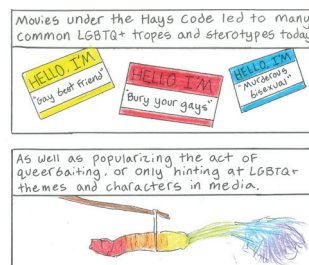 Movies under the Hays Code led to many
common LGBTQ+ tropes and sterotypes today
HELLO, I'M
"Gay best friend"
HELLO, I'M
"Bury your gays"
HELLO, I'M
"Murderous
bisexual"
As well as popularizing the act of
queerbaiting, or only hinting at LGBTQ+
themes and characters in media.